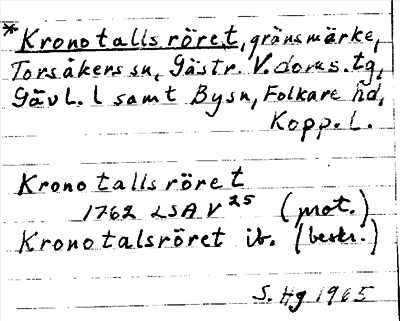 *Kronotallsröret, gränsmärke,
Torsåkers sn, Gästr. V. doms. tg,
Gävl. l samt Bysn, Folkare hd,
Kopp. L.
Kronotallsröret
1762 LSA V 25 (prot.)
Kronotalsröret ib. (beskr.)
S. Hg 1965